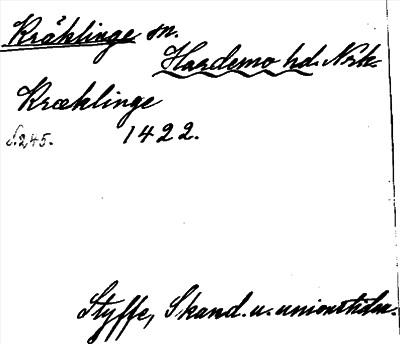 Kräklinge sn.
Hardemo hd. Nrk.
Kræklinge
S.245. 1422.
Styffe, Skand. u. unionstiden.